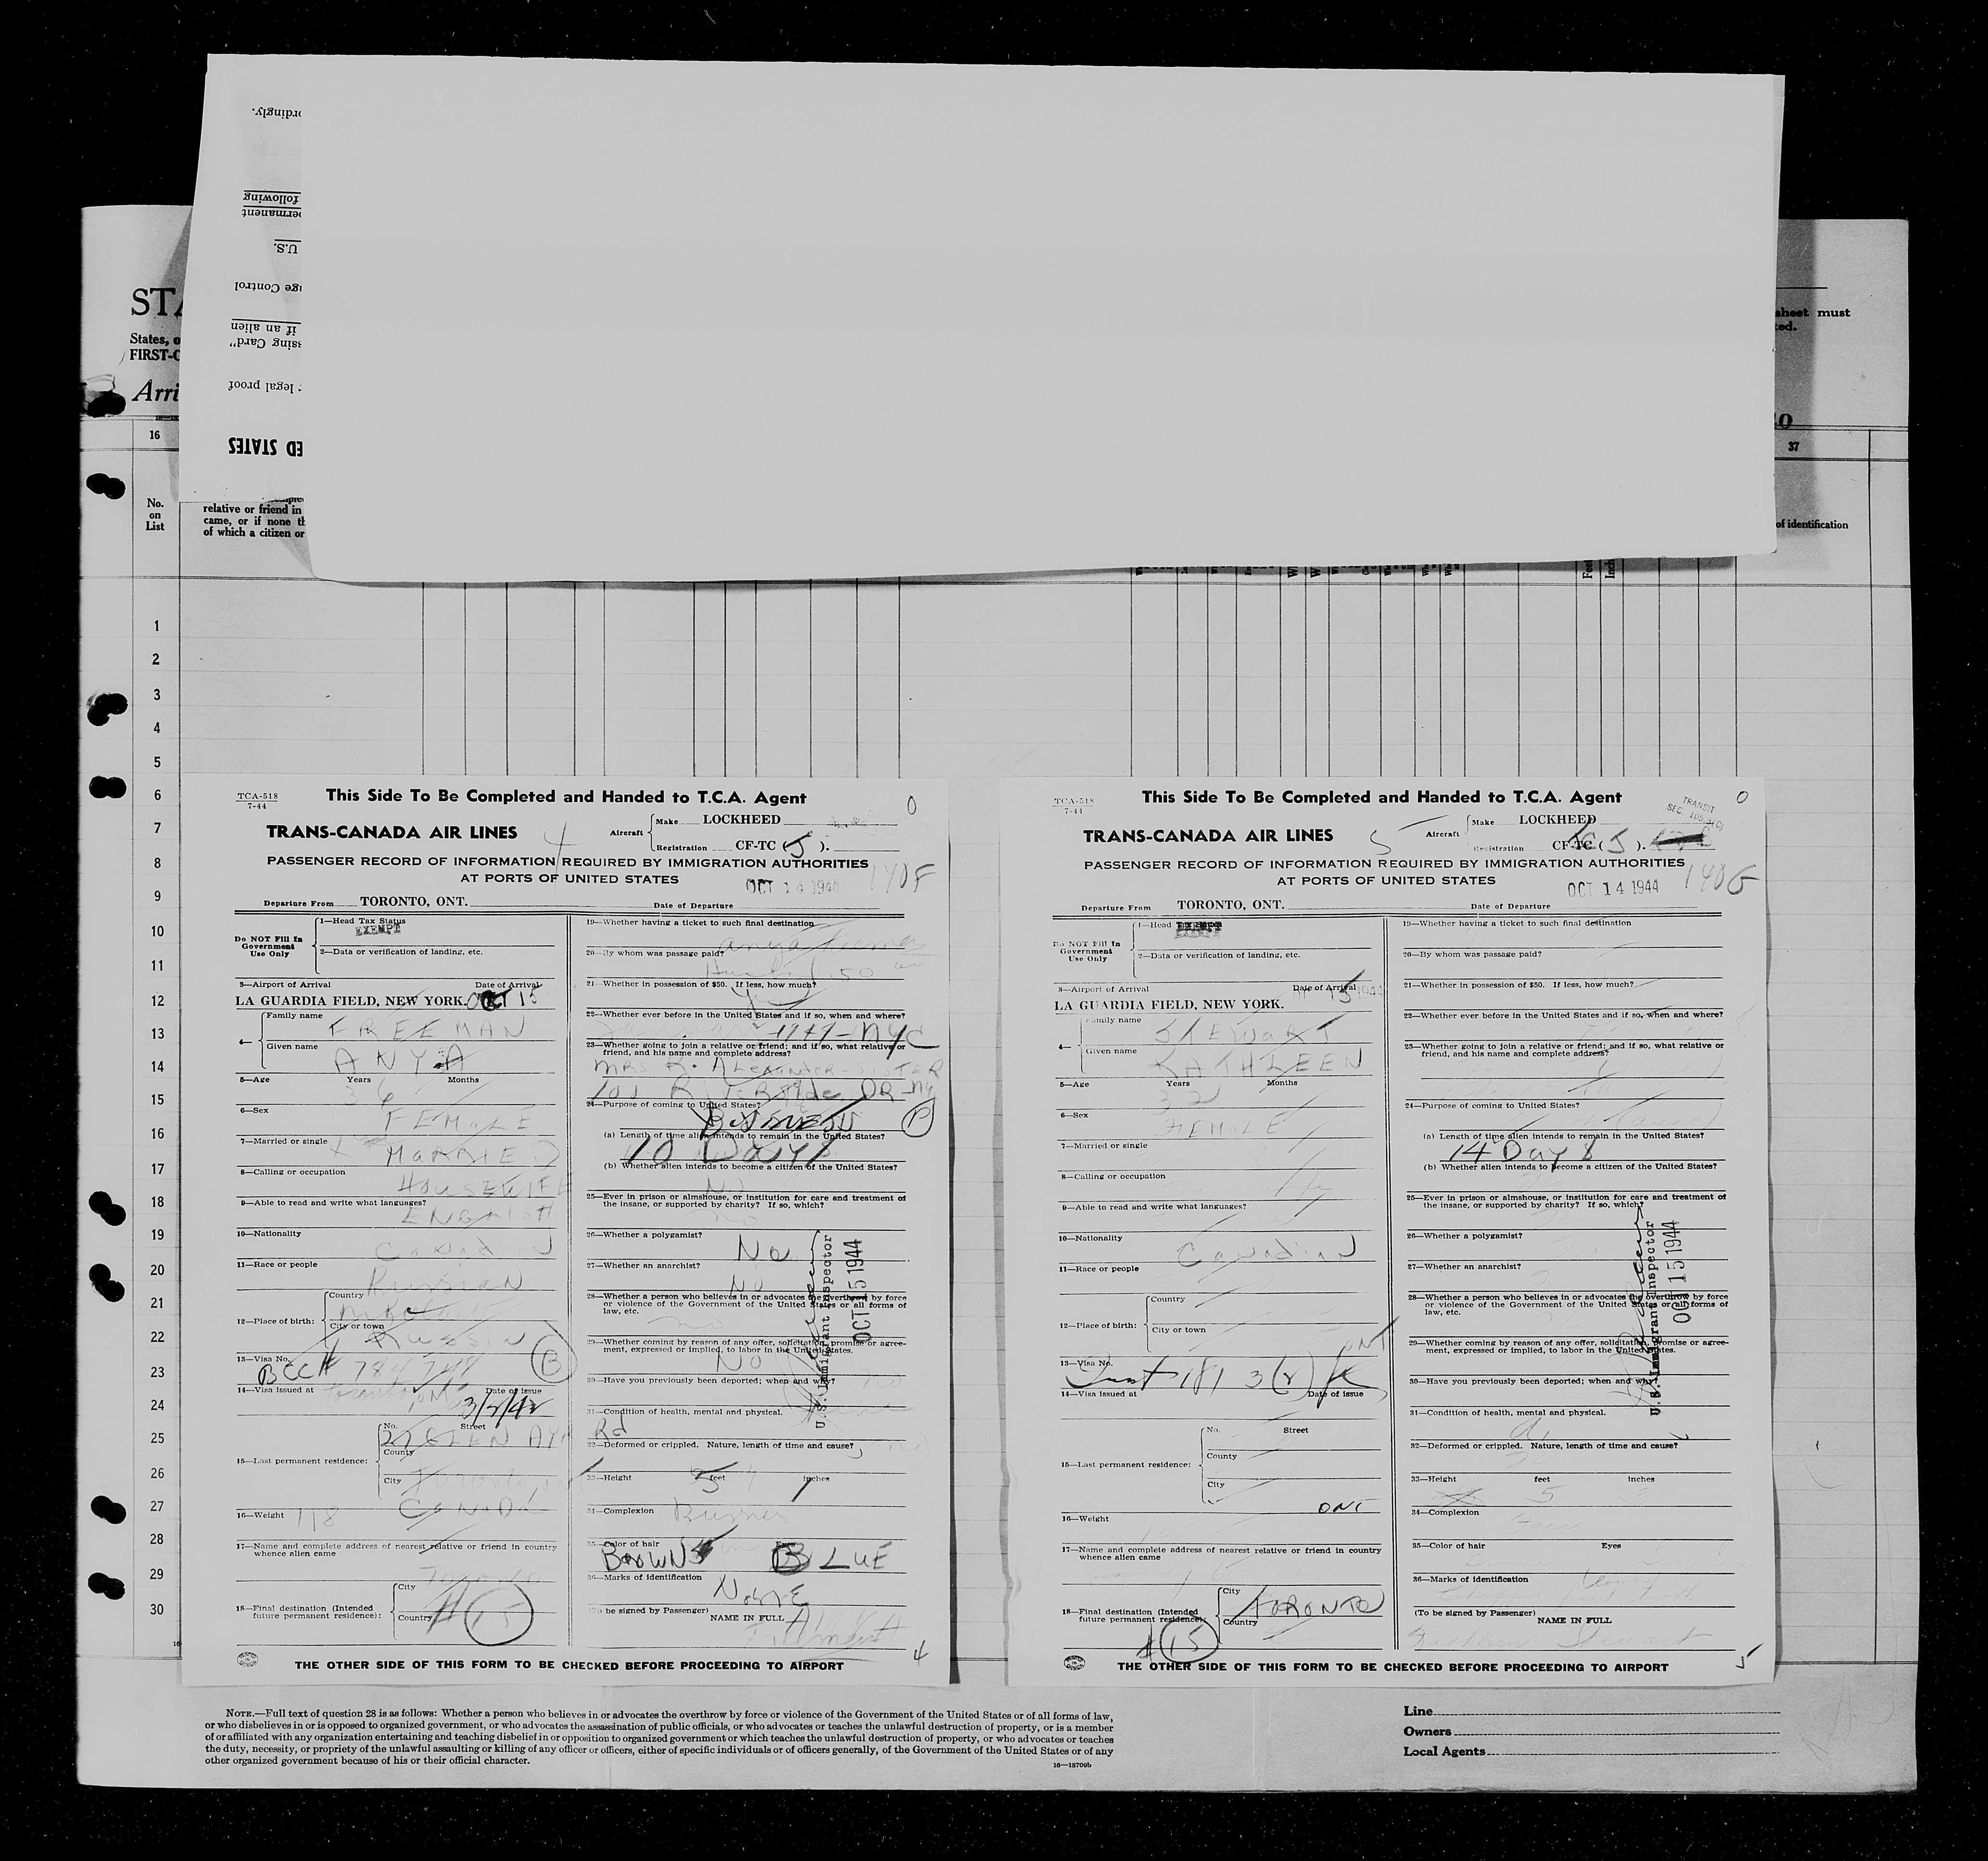 rdingly.
following
permanent
U.S.
age Control
if an alien
ssing Card"
r legal proof
ED STATES
STA
States, o
FIRST-C
Arri
sheet must
ted.
16
37
No.
on
List
relative or friend in
came, or if none th
of which a citizen or
of identification
Feet
Inch
1
2
3
4
5
6
7
8
9
10
11
12
13
14
15
16
17
18
19
20
21
22
23
24
25
26
27
28
29
30
TCA-518
7-44
This Side To Be Completed and Handed to T.C.A. Agent
0
TRANS-CANADA AIR LINES
4
Aircraft
Make LOCKHEED
Registration CF-TC (J).
PASSENGER RECORD OF INFORMATION REQUIRED BY IMMIGRATION AUTHORITIES
AT PORTS OF UNITED STATES
OCT 14 1944
140F
Departure From TORONTO, ONT. Date of Departure
Do NOT Fill In
Government
Use Only
1—Head Tax Status
EXEMPT
2—Data or verification of landing, etc.
3—Airport of Arrival Date of Arrival
LA GUARDIA FIELD, NEW YORK. OCT 15
4—
Family name FREEMAN
Given name ANYA
5—Age Years Months
36
6—Sex
FEMALE
7—Married or single
MARRIED
8—Calling or occupation
HOUSEWIFE
9—Able to read and write what languages?
ENGLISH
10—Nationality
Canadian
11—Race or people
Russian
12—Place of birth:
Country
City or town
Russia
13—Visa No.
BCC# 784748
B
14—Visa issued at Date of issue
Toronto
3/2/42
15—Last permanent residence:
No. Street
Rd
County
City
Toronto
CANADA
16—Weight 118
17—Name and complete address of nearest relative or friend in country
whence alien came
Toronto
18—Final destination (Intended
future permanent residence):
City
Country
# 15
19—Whether having a ticket to such final destination
20—By whom was passage paid?
Husband
21—Whether in possession of $50. If less, how much?
Yes
22—Whether ever before in the United States and if so, when and where?
NYC
23—Whether going to join a relative or friend; and if so, what relative or
friend, and his name and complete address?
MRS R. ALEXANDER-SISTER
Riverside DR-NY
24—Purpose of coming to United States?
Business
P
(a) Length of time alien intends to remain in the United States?
10 Days
(b) Whether alien intends to become a citizen of the United States?
No
25—Ever in prison or almshouse, or institution for care and treatment of
the insane, or supported by charity? If so, which?
No
26—Whether a polygamist?
No
27—Whether an anarchist?
No
28—Whether a person who believes in or advocates the overthrow by force
or violence of the Government of the United States or all forms of
law, etc.
no
29—Whether coming by reason of any offer, solicitation, promise or agree-
ment, expressed or implied, to labor in the United States.
No
30—Have you previously been deported; when and why?
31—Condition of health, mental and physical.
32—Deformed or crippled. Nature, length of time and cause?
33—Height feet inches
5 1
34—Complexion
35—Color of hair
BROWN BLUE
36—Marks of identification
None
(To be signed by Passenger)
NAME IN FULL
U.S. Immigrant Inspector
OCT 15 1944
4
THE OTHER SIDE OF THIS FORM TO BE CHECKED BEFORE PROCEEDING TO AIRPORT
TCA-518
7-44
This Side To Be Completed and Handed to T.C.A. Agent
0
TRANSIT
SEC. 105.3(C)
TRANS-CANADA AIR LINES
5
Aircraft
Make LOCKHEED
Registration CF-TC (J).
PASSENGER RECORD OF INFORMATION REQUIRED BY IMMIGRATION AUTHORITIES
AT PORTS OF UNITED STATES
OCT 14 1944
140G
Departure From TORONTO, ONT. Date of Departure
Do NOT Fill In
Government
Use Only
1—Head
EXEMPT
2—Data or verification of landing, etc.
3—Airport of Arrival Date of Arrival
LA GUARDIA FIELD, NEW YORK. 15
4—
Family name STEWART
Given name KATHLEEN
5—Age Years Months
32
6—Sex
FEMALE
7—Married or single
8—Calling or occupation
9—Able to read and write what languages?
10—Nationality
Canadian
11—Race or people
12—Place of birth:
Country
City or town
ONT
13—Visa No.
14—Visa issued at Date of issue
15—Last permanent residence:
No. Street
County
City
ONT
16—Weight
17—Name and complete address of nearest relative or friend in country
whence alien came
18—Final destination (Intended
future permanent residence):
City TORONTO
Country
# 15
19—Whether having a ticket to such final destination
20—By whom was passage paid?
21—Whether in possession of $50. If less, how much?
22—Whether ever before in the United States and if so, when and where?
23—Whether going to join a relative or friend; and if so, what relative or
friend, and his name and complete address?
24—Purpose of coming to United States?
(a) Length of time alien intends to remain in the United States?
14 Days
(b) Whether alien intends to become a citizen of the United States?
25—Ever in prison or almshouse, or institution for care and treatment of
the insane, or supported by charity? If so, which?
26—Whether a polygamist?
27—Whether an anarchist?
28—Whether a person who believes in or advocates the overthrow by force
or violence of the Government of the United States or all forms of
law, etc.
29—Whether coming by reason of any offer, solicitation, promise or agree-
ment, expressed or implied, to labor in the United States.
30—Have you previously been deported; when and why?
31—Condition of health, mental and physical.
32—Deformed or crippled. Nature, length of time and cause?
33—Height feet inches
5
34—Complexion
Fair
35—Color of hair Eyes
36—Marks of identification
(To be signed by Passenger)
NAME IN FULL
Kathleen Stewart
U.S. Immigrant Inspector
OCT 15 1944
5
THE OTHER SIDE OF THIS FORM TO BE CHECKED BEFORE PROCEEDING TO AIRPORT
NOTE.—Full text of question 28 is as follows: Whether a person who believes in or advocates the overthrow by force or violence of the Government of the United States or of all forms of law,
or who disbelieves in or is opposed to organized government, or who advocates the assassination of public officials, or who advocates or teaches the unlawful destruction of property, or is a member
of or affiliated with any organization entertaining and teaching disbelief in or opposition to organized government or which teaches the unlawful destruction of property, or who advocates or teaches
the duty, necessity, or propriety of the unlawful assaulting or killing of any officer or officers, either of specific individuals or of officers generally, of the Government of the United States or of any
other organized government because of his or their official character.
16—18709b
Line
Owners
Local Agents